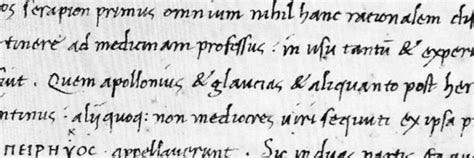 os serapion primus omnium nihil hanc rationalem dis
tinere ad medicinam professus : in usu tantũ & experi
uit. Quem apollonius & glaucias & aliquanto post her
ntinus : aliiquoq: non mediocres uiri sequuti ex ipsa p
ΠΕΙΡΗΥΟC . appellauerunt . Sic in duas partis